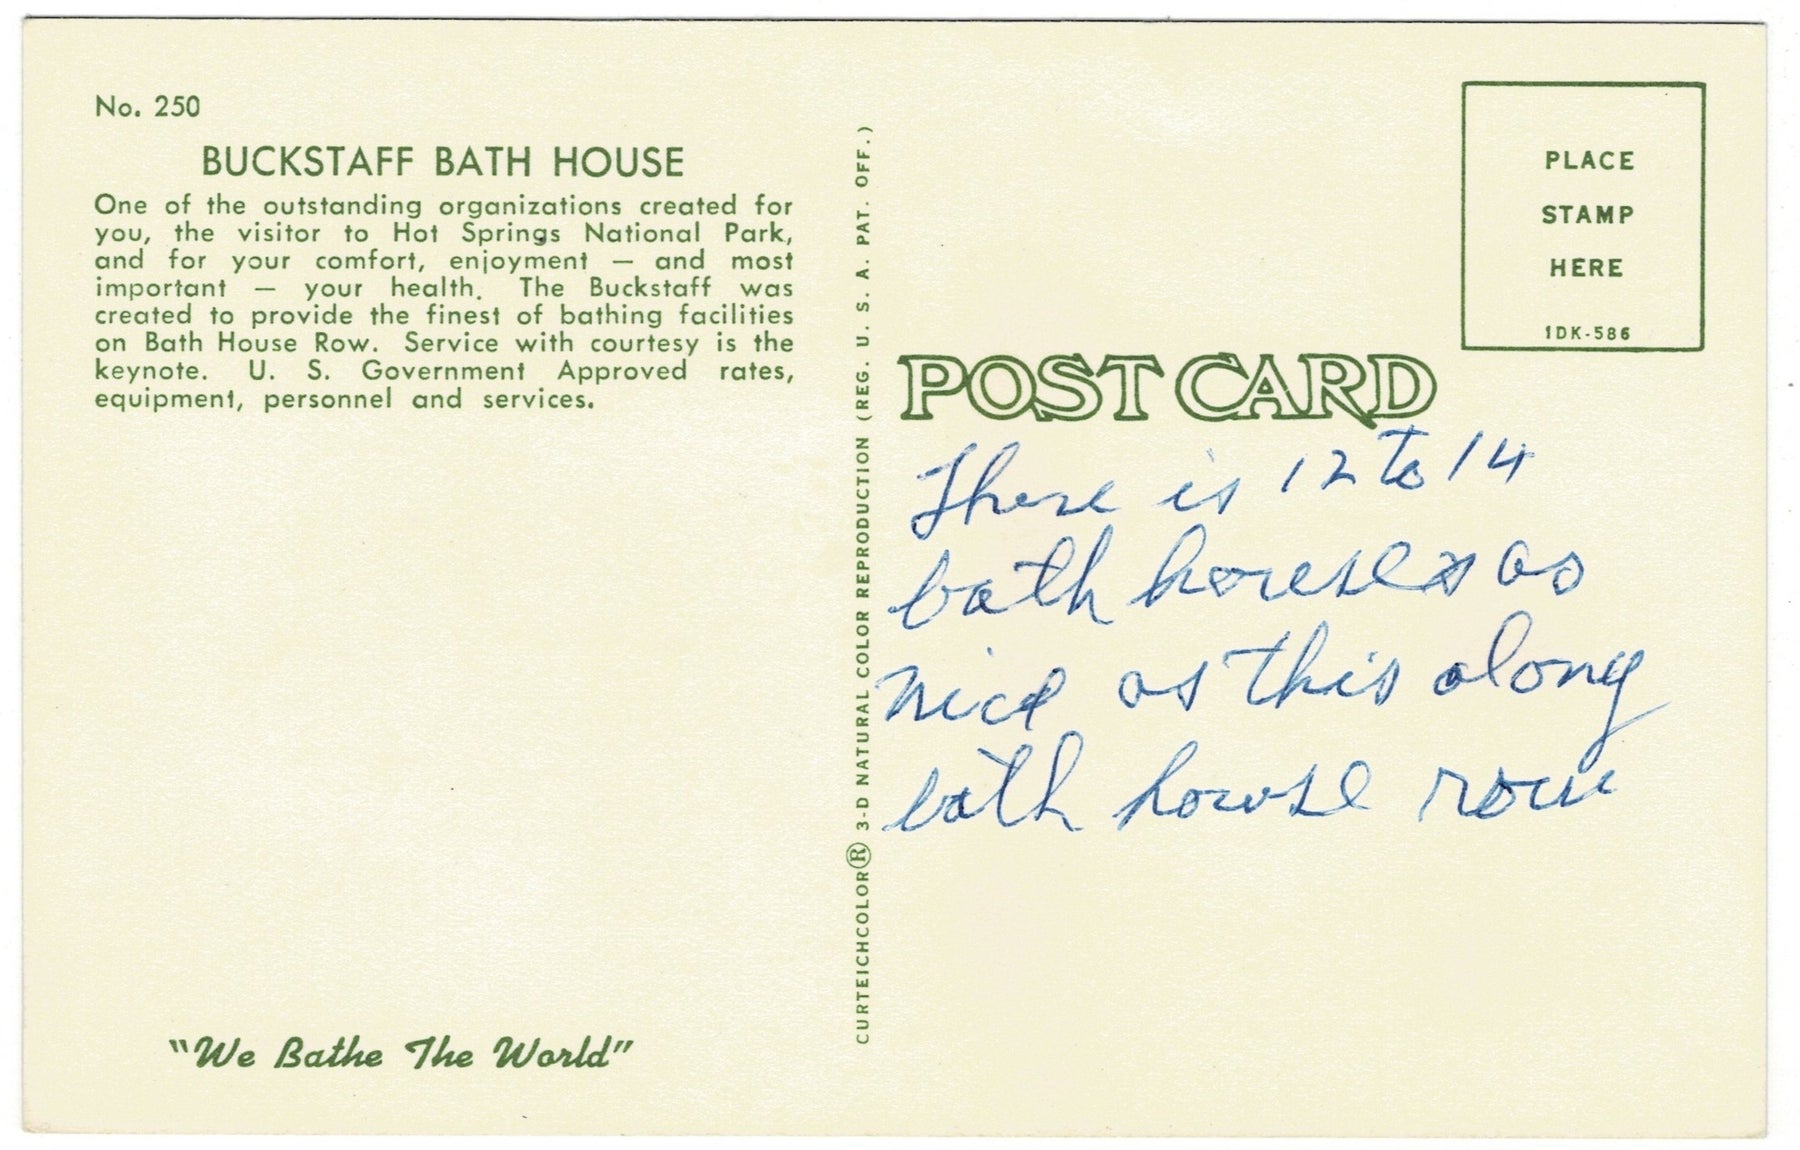 No. 250
BUCKSTAFF BATH HOUSE
One of the outstanding organizations created for
you, the visitor to Hot Springs National Park,
and for your comfort, enjoyment — and most
important — your health. The Buckstaff was
created to provide the finest of bathing facilities
on Bath House Row. Service with courtesy is the
keynote. U. S. Government Approved rates,
equipment, personnel and services.
"We Bathe The World"
CURTEICHCOLOR® 3-D NATURAL COLOR REPRODUCTION (REG. U. S. A. PAT. OFF.)
PLACE
STAMP
HERE
1DK-586
POST CARD
There is 12 to 14
bath houses as
nice as this along
bath house row